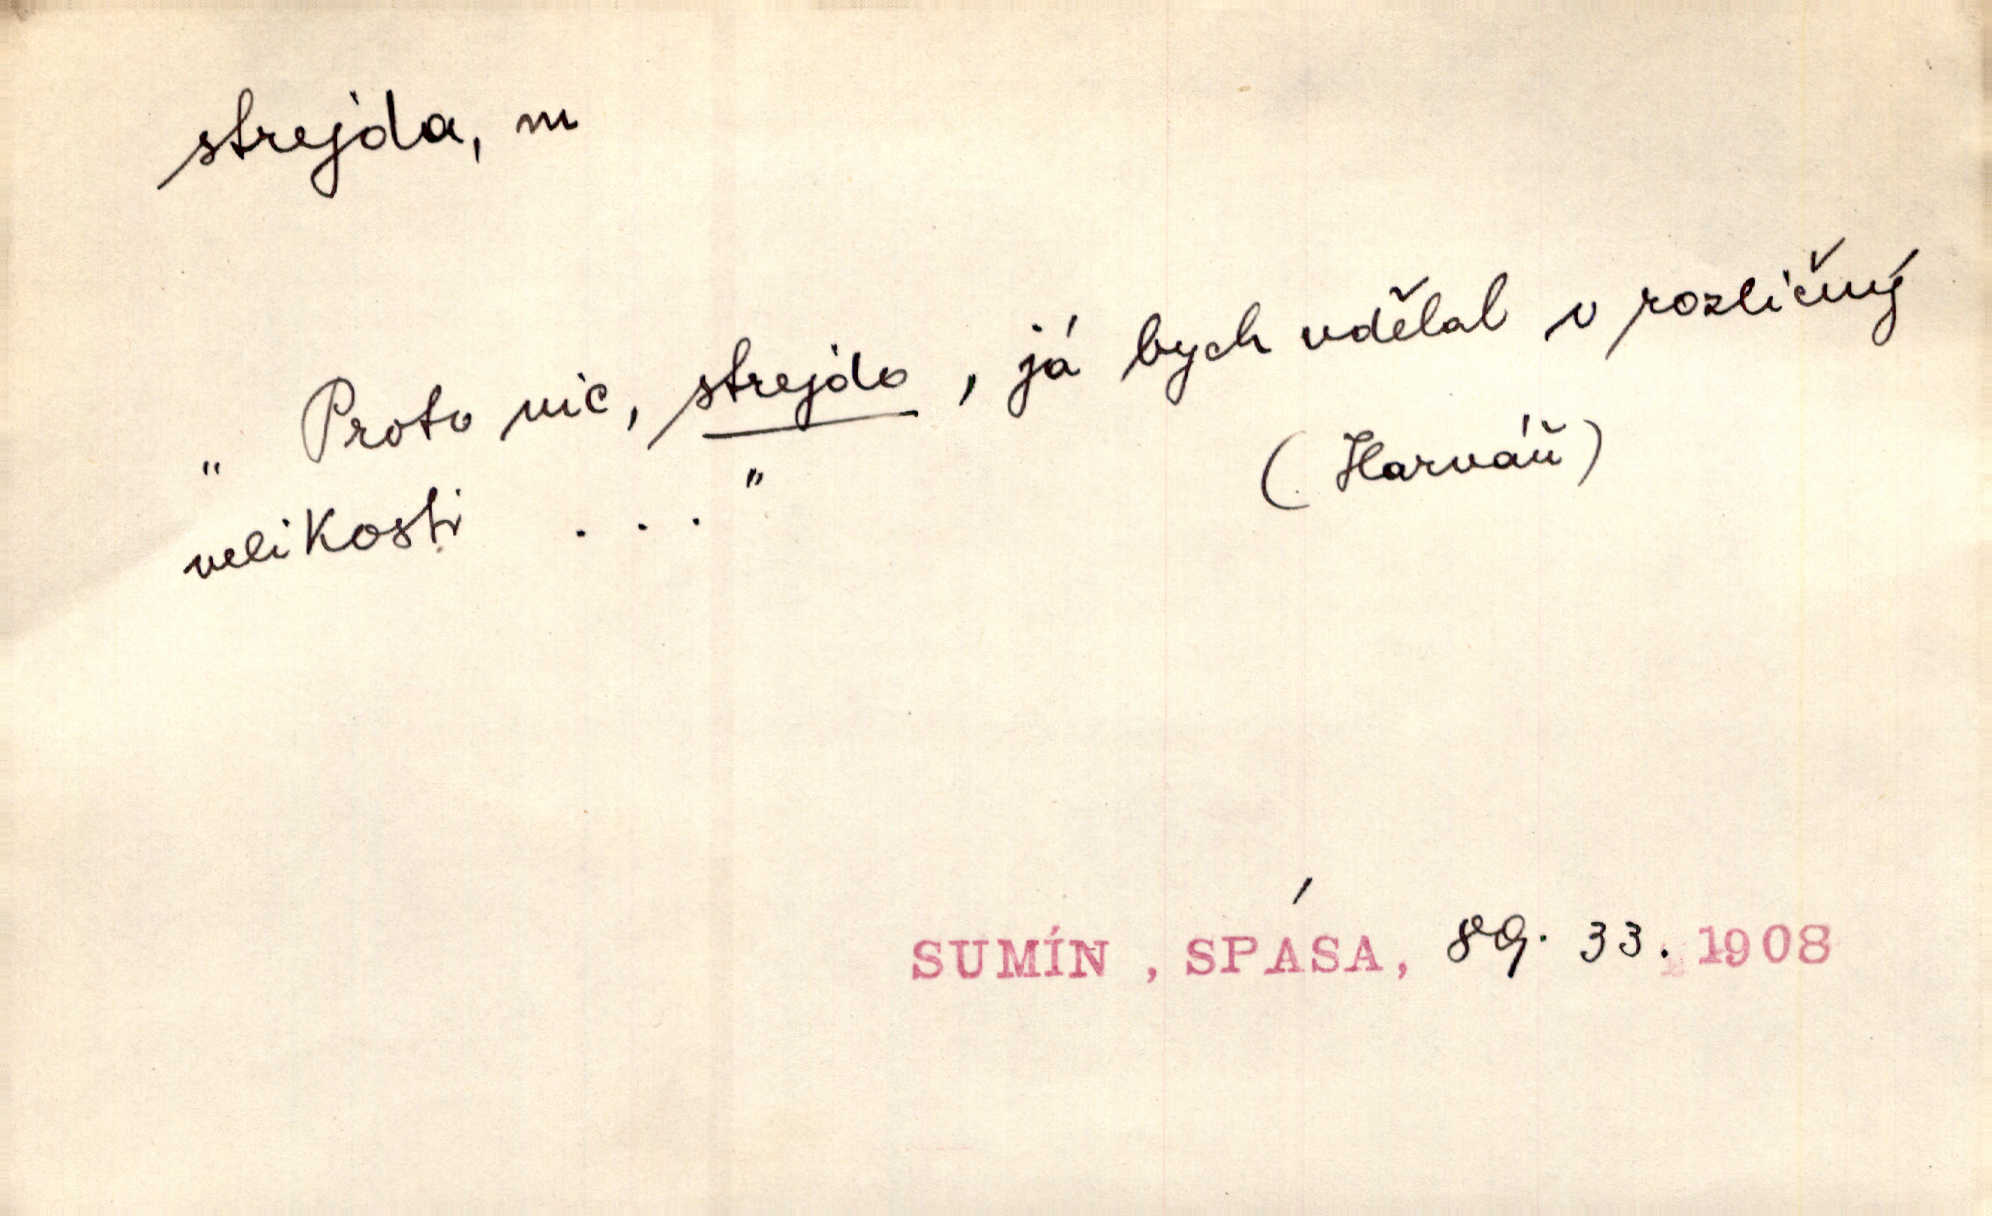 strejda, m
„ Proto nic, strejdo, já bych vdělal v rozličný
velikosti . . . " (Harváň)
SUMÍN, SPÁSA, 89. 33. 1908